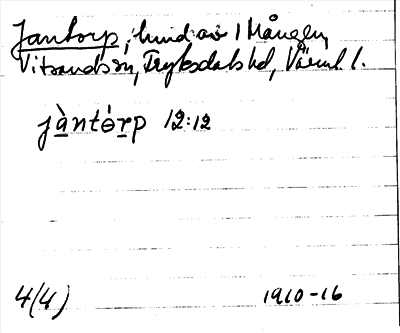 Jantorp, hmd av 1 Mången,
Vitsands sn, Fryksdals hd, Värml. l.
jàntórp 12:12
4(4) 1910-16